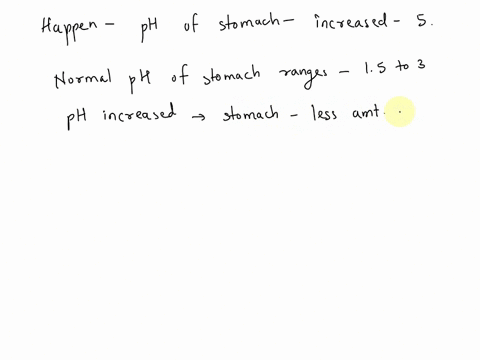 Happen - pH of stomach - increased - 5.
Normal pH of stomach ranges - 1.5 to 3
pH increased → stomach - less amt.